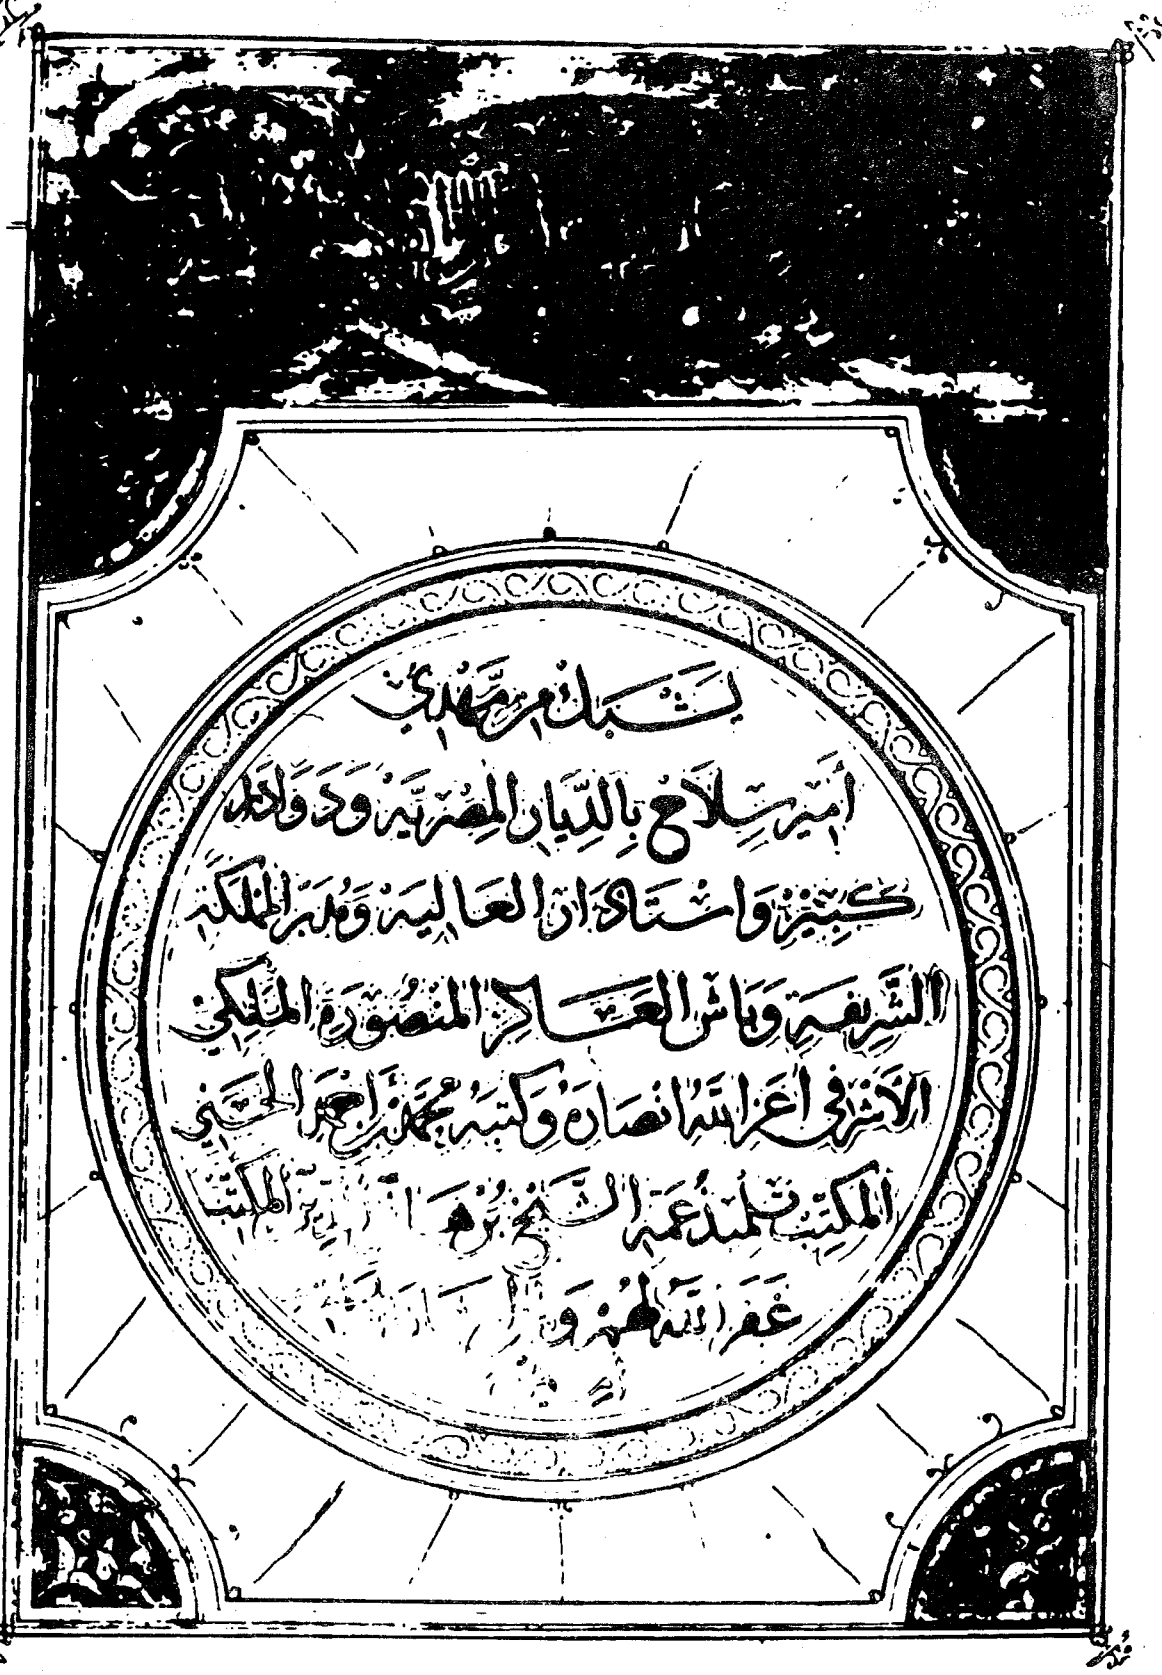 يشبك من مهدي
أمير سلاح بالديار المصرية ودوادار
كبير واستادار العالية ومدبر المملكة
الشريفة وباش العساكر المنصورة الملكي
الأشرفي أعز الله أنصاره وكتبه محمد بن أحمد الحسني
المكتب تلميذ عمه الشيخ برهان الدين المكتب
غفر الله لهم و